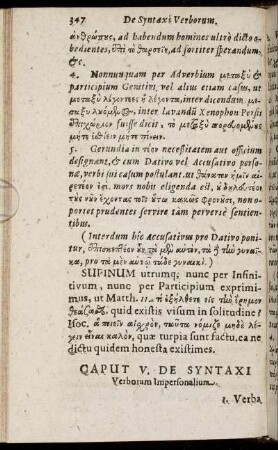 347 De Syntaxi Verborum.
ἀνθρώπυς, ad habendum homines ultrò dicto o-
bedientes, ὑπὶ τὸ θαρσεῖν, ad fortiter sperandum,
&c.
4. Nonnunquam per Adverbium μεταξὺ &
participium Genitivi, vel alius etiam casus, ut
μεταξὺ λέγοντες ἢ λέγοντα, inter dicendum. με-
inter lavandũ Xenophon Persis
fuisse dicit. τὸ μεταξὺ
μήτε ἐσθίειν μήτε πίνειν.
5. Gerundia in τέον necessitatem aut officium
designant, & cum Dativo vel Accusativo perso-
næ, verbi sui casum postulant. ut θάνατον ἡμῖν αἱ-
ρετέον ἐςὶ. mors nobis eligenda est. οὐ δουλευτέον
τὺς νῦν ἔχοντας τοῖς οὕτω κακῶς φρονῦσι, non o-
portet prudentes servire tàm perversè sentien-
tibus.
(Interdum hîc Accusativus pro Dativo poni-
tur,
pro
SUPINUM utrumq; nunc per Infini-
tivum, nunc per Participium exprimi-
mus, ut Matth. 11. τί ἐξήλθετε εἰς τὴν ἔρημον
θεάζαθς, quid existis visum in solitudine?
Isoc. ἃ ποιεῖν αἰσχρὸν, ταῦτα νόμιζε μηδὲ λέ-
γειν εἶναι καλὸν, quæ turpia sunt factu, ea ne
dictu quidem honesta existimes.
CAPUT V. DE SYNTAXI
Verborum Impersonalium.
1. Verba